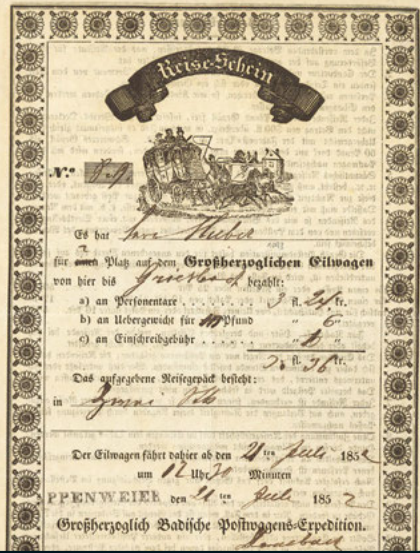 Reise-Schein
No. 8·9
Es hat Herr Huber
für einen 2 Platz auf dem Großherzoglichen Eilwagen
von hier bis Griesbach bezahlt:
a) an Personentaxe . . . . . . . 3 fl. 24 kr.
b) an Uebergewicht für Pfund " 6 "
c) an Einschreibgebühr . . . . . "
fl. 36 kr.
Das aufgegebene Reisegepäck besteht:
in Zwei
Der Eilwagen fährt dahier ab den 21 ten Juli 1852
um 12 Uhr 30 Minuten
PPENWEIER den 21 ten Juli 1852
Großherzoglich Badische Postwagens-Expedition.